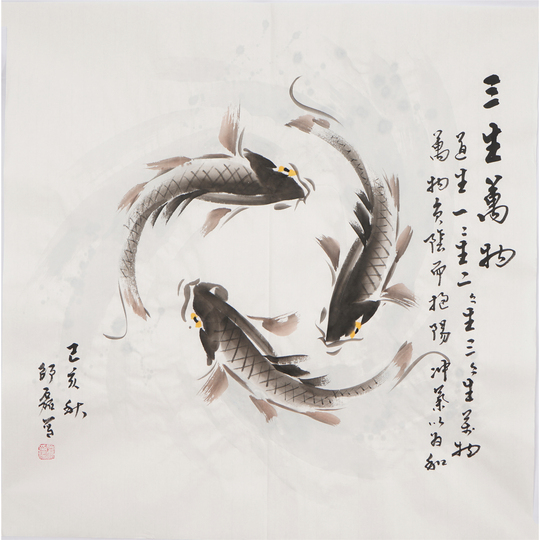 三生萬物
道生一二生二々生三々生萬物
萬物負陰而抱陽冲氣以為和
己亥秋
舒磊寫